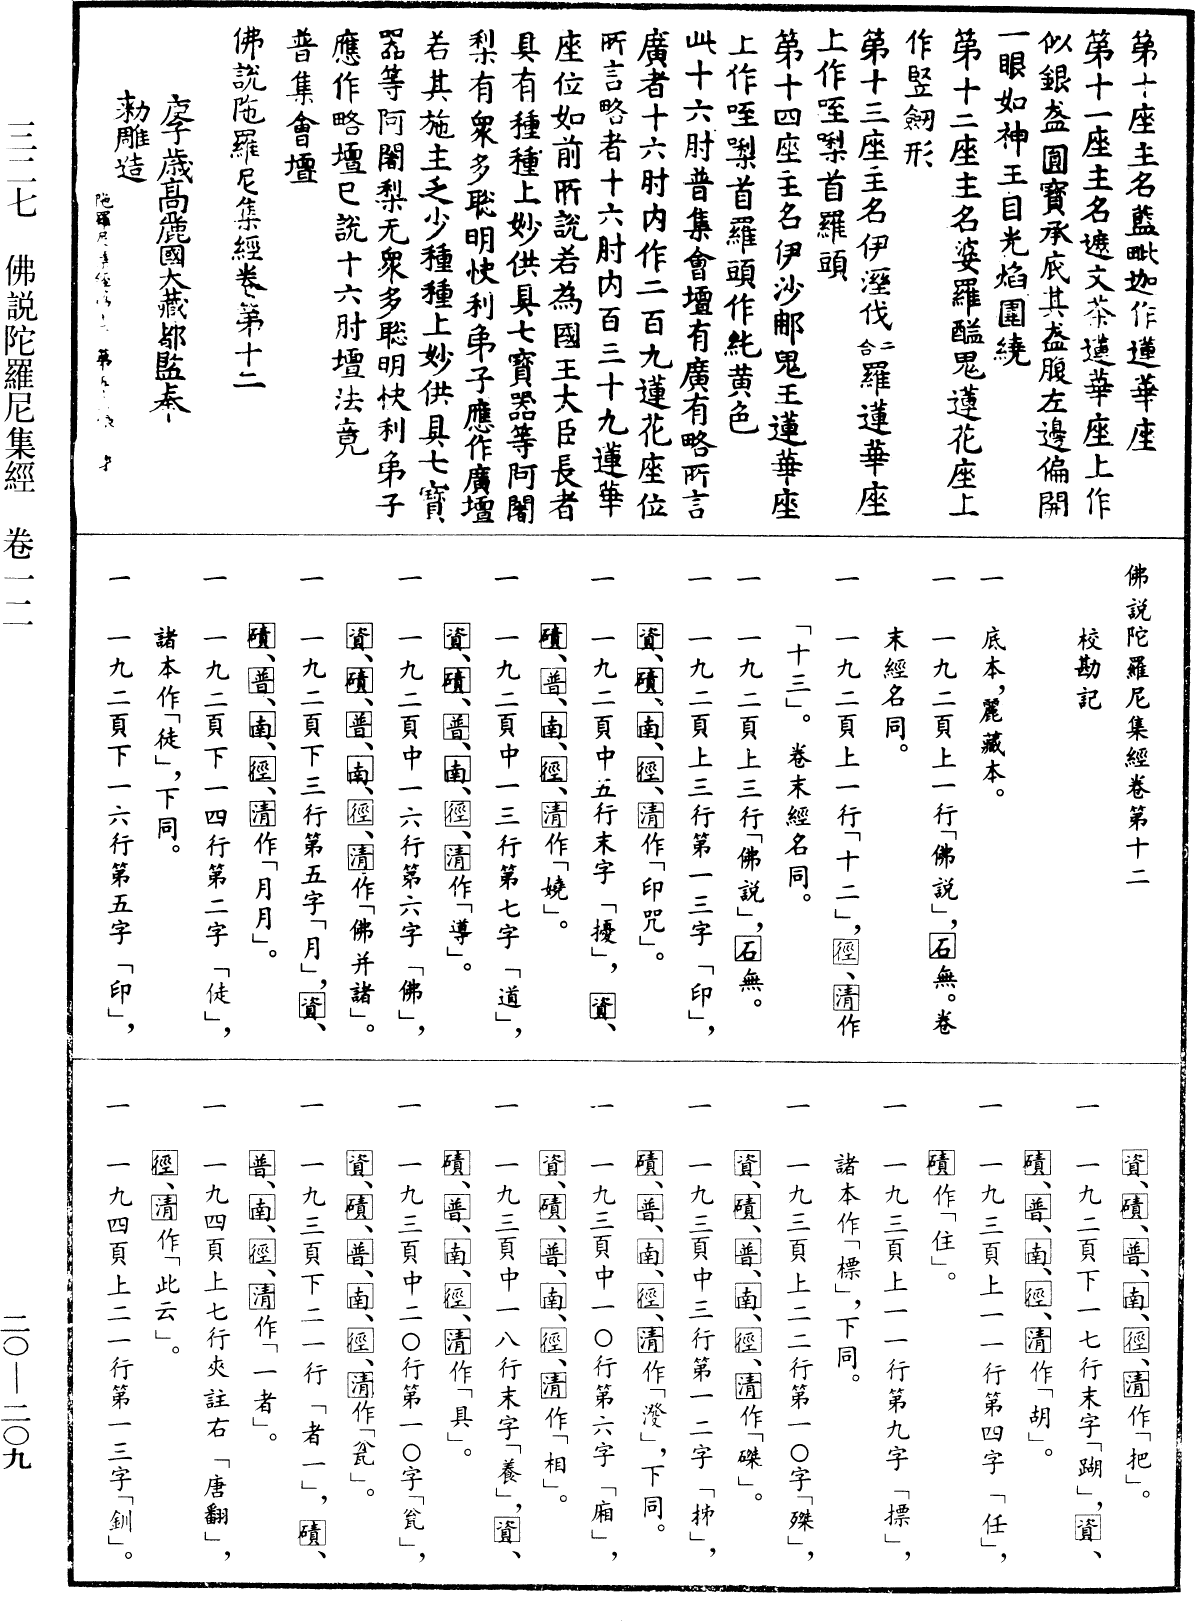 第十座主名藍毗迦作蓮華座
第十一座主名遮文茶蓮華座上作
似銀盞圓寶承底其盞腹左邊偏開
一眼如神王目光焰圍繞
第十二座主名婆羅醯鬼蓮花座上
作竪劒形
第十三座主名伊溼伐二合羅蓮華座
上作咥㗚首羅頭
第十四座主名伊沙那鬼王蓮華座
上作咥㗚首羅頭作純黄色
此十六肘普集會壇有廣有略所言
廣者十六肘内作二百九蓮花座位
所言略者十六肘内百三十九蓮華
座位如前所說若為國王大臣長者
具有種種上妙供具七寶器等阿闍
梨有衆多聡明快利弟子應作廣壇
若其施主乏少種種上妙供具七寶
器等阿闍梨无衆多聡明快利弟子
應作略壇已說十六肘壇法竟
普集會壇
佛說陁羅尼集經卷第十二
庚子歳高麗國大藏都監奉
勅雕造
佛説陀羅尼集經卷第十二
校勘記
一 底本，麗藏本。
一 一九二頁上一行「佛説」，石無。卷
末經名同。
一 一九二頁上一行「十二」，徑、清作
「十三」。卷末經名同。
一 一九二頁上三行「佛説」，石無。
一 一九二頁上三行第一三字「印」，
資、磧、南、徑、清作「印咒」。
一 一九二頁中五行末字「擾」，資、
磧、普、南、徑、清作「嬈」。
一 一九二頁中一三行第七字「道」，
資、磧、普、南、徑、清作「導」。
一 一九二頁中一六行第六字「佛」，
資、磧、普、南、徑、清作「佛并諸」。
一 一九二頁下三行第五字「月」，資、
磧、普、南、徑、清作「月月」。
一 一九二頁下一四行第二字「徒」，
諸本作「徒」，下同。
一 一九二頁下一六行第五字「印」，
資、磧、普、南、徑、清作「把」。
一 一九二頁下一七行末字「瑚」，資、
磧、普、南、徑、清作「胡」。
一 一九三頁上一一行第四字「任」，
磧作「住」。
一 一九三頁上一一行第九字「摽」，
諸本作「標」，下同。
一 一九三頁上二二行第一〇字「殩」，
資、磧、普、南、徑、清作「磔」。
一 一九三頁中三行第一二字「柹」，
磧、普、南、徑、清作「潑」，下同。
一 一九三頁中一〇行第六字「廂」，
資、磧、普、南、徑、清作「相」。
一 一九三頁中一八行末字「養」，資、
磧、普、南、徑、清作「具」。
一 一九三頁中二〇行第一〇字「瓮」，
資、磧、普、南、徑、清作「瓮」。
一 一九三頁下二一行「者一」，磧、
普、南、徑、清作「一者」。
一 一九四頁上七行夾註右「唐翻」，
徑、清作「此云」。
一 一九四頁上二一行第一三字「釧」。
三二七 佛説陀羅尼集經 卷一二
二〇—二〇九